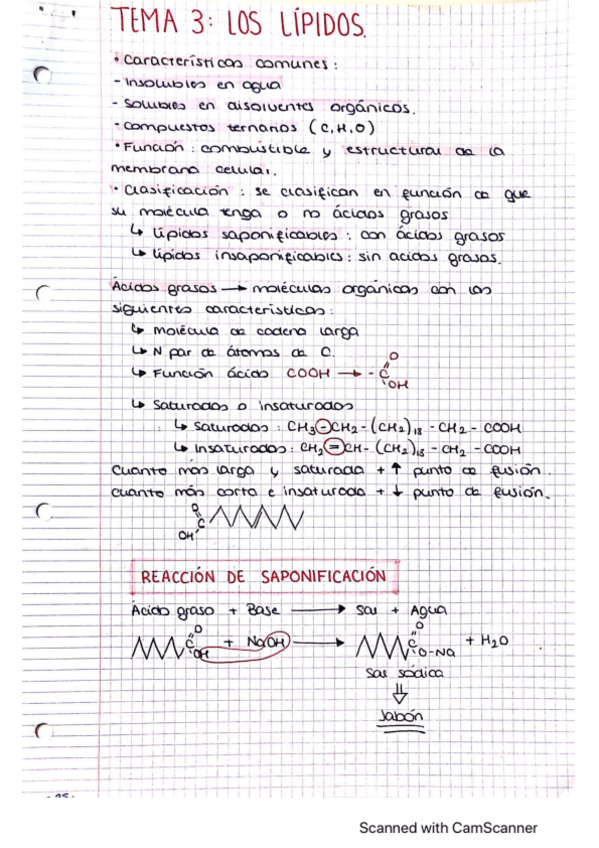 TEMA 3: LOS LÍPIDOS.
• Características comunes:
- Insolubles en agua
- Solubles en disolventes orgánicos.
- Compuestos ternarios (C, H, O)
• Función: combustible y estructural de la
membrana celular.
• Clasificación: se clasifican en función de que
su molécula tenga o no ácidos grasos
↳ Lípidos saponificables: con ácidos grasos
↳ Lípidos insaponificables: sin acidos grasos.
Ácidos grasos → moléculas orgánicas con las
siguientes características:
↳ Molécula de cadena larga
↳ N par de átomos de C.
↳ Función ácido COOH → -C=O OH
↳ Saturados o insaturados
↳ Saturados: CH3-CH2-(CH2)18-CH2-COOH
↳ Insaturados: CH2=CH-(CH2)18-CH2-COOH
Cuanto más larga y saturada + ↑ punto de fusión.
Cuanto más corta e insaturada + ↓ punto de fusión.
O
C
OH
REACCIÓN DE SAPONIFICACIÓN
Ácido graso + Base → Sal + Agua
C=O OH + NaOH → C=O O-Na + H2O
Sal sódica
⇓
Jabón
Scanned with CamScanner